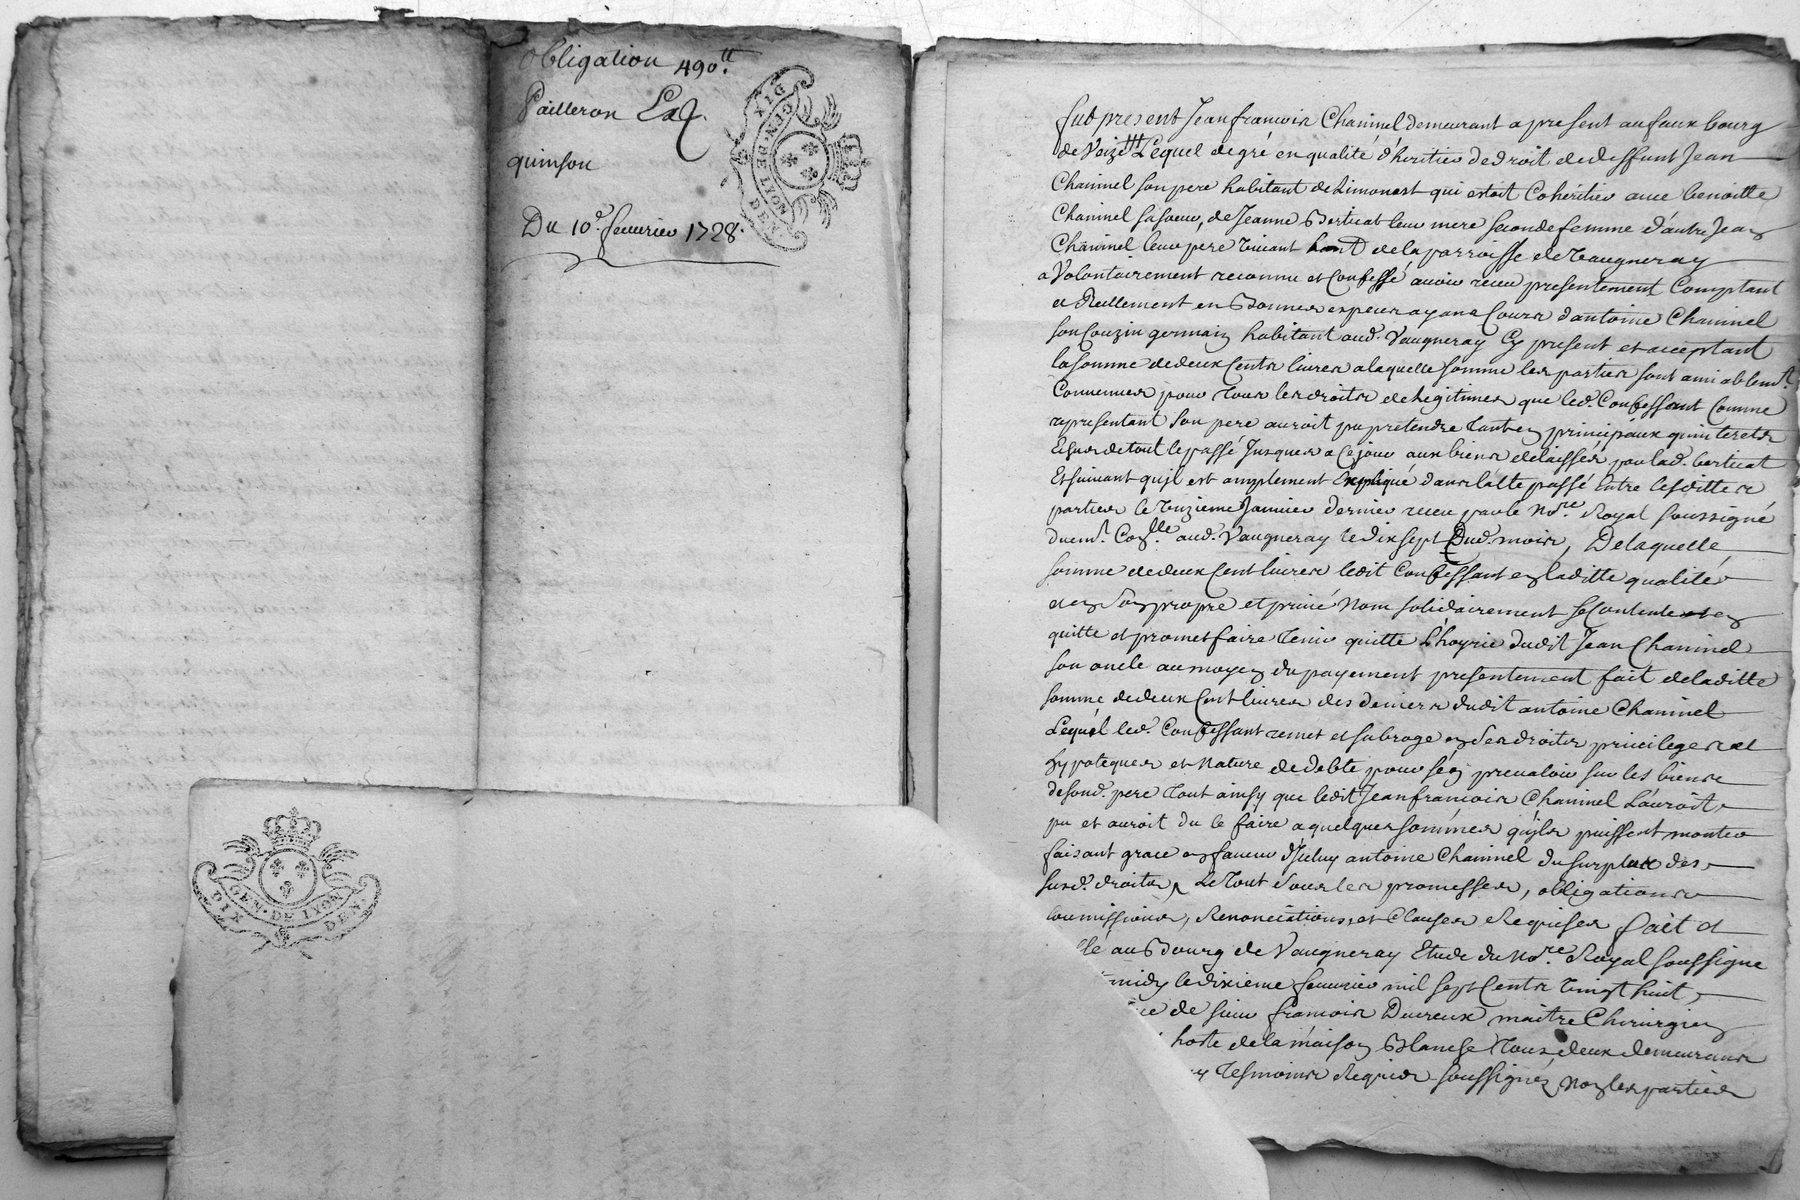 Obligation 490.tt
Pailleron
quinson
Du 10.e feuurier 1728.
GEN. DE LYON
DIX DEN.
GEN. DE LYON
DIX DEN.
fut present Jean francois Chaninel demeurant a present au faux bourg
de Vaize Lequel de gré en qualité d'heritier de droit de deffunt Jean
Chaninel son pere habitant de Limonest qui estoit Coheritier auec benoitte
Chaninel sa soeur, de Jeanne Bertucat leur mere seconde femme d'autre Jean
Chaninel leur pere viuant de la parroisse de Vaugneray
a Volontairement reconnu et Confessé auoir receu presentement Comptant
et Reellement en Bonnes especes ayans Cours d'antoine Chaninel
son Couzin germain habitant aud. Vaugneray Cy present et acceptant
la somme de deux Cents liures a laquelle somme les parties sont amiablemt.
Conuenues pour tous les droits de Legitimes que led. Confessant Comme
representant son pere auroit pu pretendre tant en principaux qu'interets
Echus de tout le passé Jusques a Ce jour aux biens delaissés par lad. bertucat
Et suiuant qu'jl est amplement Expliqué dans l'atte passé entre lesdittes
parties le treizieme Januier dernier receu par le Nore. Royal soussigné
duemt. Conlle. aud. Vaugneray le dix sept Dud. mois, De laquelle
somme de deux Cent liures ledit Confessant en laditte qualité
et en son propre et priué Nom solidairement se Contente et en
quitte et promet faire tenir quitte L'hoyrie dudit Jean Chaninel
son oncle au moyen du payement presentement fait de laditte
somme de deux Cent liures des deniers dudit antoine Chaninel
Lequel led. Confessant remet et subroge en ses droits priuileges et
hypoteques et Nature de debte pour s'en preualoir sur les biens
de sond. pere tout ainsy que ledit Jean francois Chaninel L'auroit
pu et auroit du le faire a quelques sommes qu'jls puissent monter
faisant grace en faueur d'Jceluy antoine Chaninel du surplus des
susd. droits, Le tout sous les promesses, obligations
soumissions, Renonciations, et Clauses Requises fait et
au Bourg de Vaugneray Etude du Nore. Royal soussigne
midy le dixieme feuurier mil sept Cents vingt huit
de sieur francois Dureux maitre Chirurgien
hoste de la maison Blanche tous deux demeurans
tesmoins Requis soussignés Non les parties